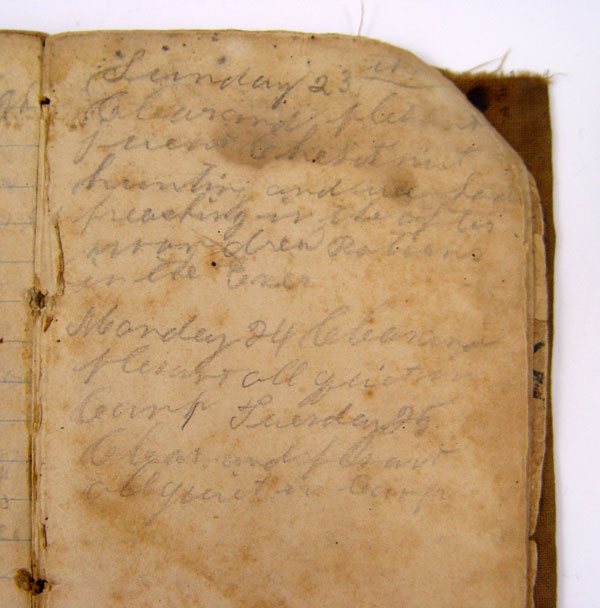 Sunday 23
Clear and plesant
I went Chestnut
hunting and we had
preaching in the after
noon drew Rations
in the Even
Monday 24 Clear and
plesant all quiet in
Camp Tuesday 25
Clear and plesant
all quiet in Camp